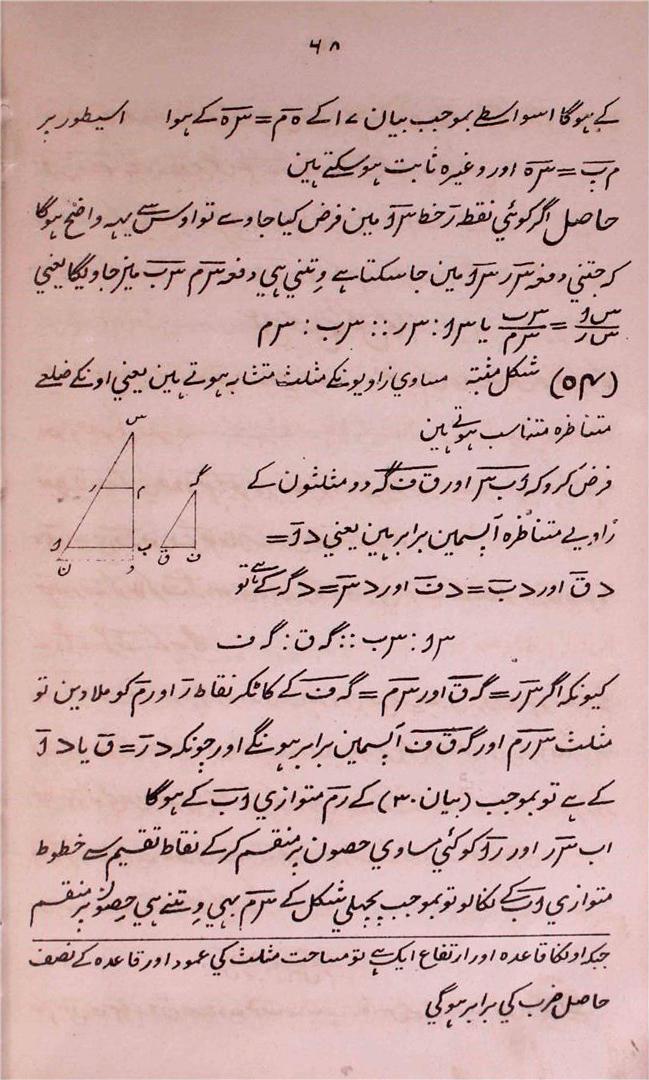 ۶۸
کے ہوگا اسواسطے بموجب بیان ۱۷ کے ہ م = س ہ کے ہوا اسیطور پر
م ب = س ہ اور وغیرہ ثابت ہو سکتے ہین
حاصل اگر کوئي نقطہ ر خط س ا مین فرض کیا جاوے تو اوس سے یہہ واضح ہوگا
کہ جتني دفعہ س ر س ا مین جا سکتا ہے وتني ہي دفعہ س م س ب مین جاویگا یعني
س ا / س ر = س ب / س م یا س ا : س ر :: س ب : س م
(۵۴) شکل مثبتہ مساوي زاویونکے مثلث متشابہ ہوتے ہین یعني اونکے ضلعے
متناظرہ متناسب ہوتے ہین
س
گ
ر م
ا ب ق ف
ن د
فرض کرو کہ ا ب س اور ق ف گ دو مثلثون کے
زاویے متناظرہ آپسمین برابر ہین یعني د ا =
د ق اور د ب = د ف اور د س = د گ کے ہے تو
س ا : س ب :: گ ق : گ ف
کیونکہ اگر س ر = گ ق اور س م = گ ف کے کاٹکر نقاط ر اور م کو ملا دین تو
مثلث س ر م اور گ ق ف آپسمین برابر ہونگے اور چونکہ د ر = ق یا د ا
کے ہے تو بموجب (بیان ۳۰) کے ر م متوازي ا ب کے ہوگا
اب س ر اور ر ا کو کئي مساوي حصون پر منقسم کرکے نقاط تقسیم سے خطوط
متوازي ا ب کے نکالو تو بموجب پچھلي شکل کے س م بھي وتنے ہي حصونپر منقسم
جبکہ اونکا قاعدہ اور ارتفاع ایک ہے تو مساحت مثلث کي عمود اور قاعدہ کے نصف
حاصل ضرب کي برابر ہوگي